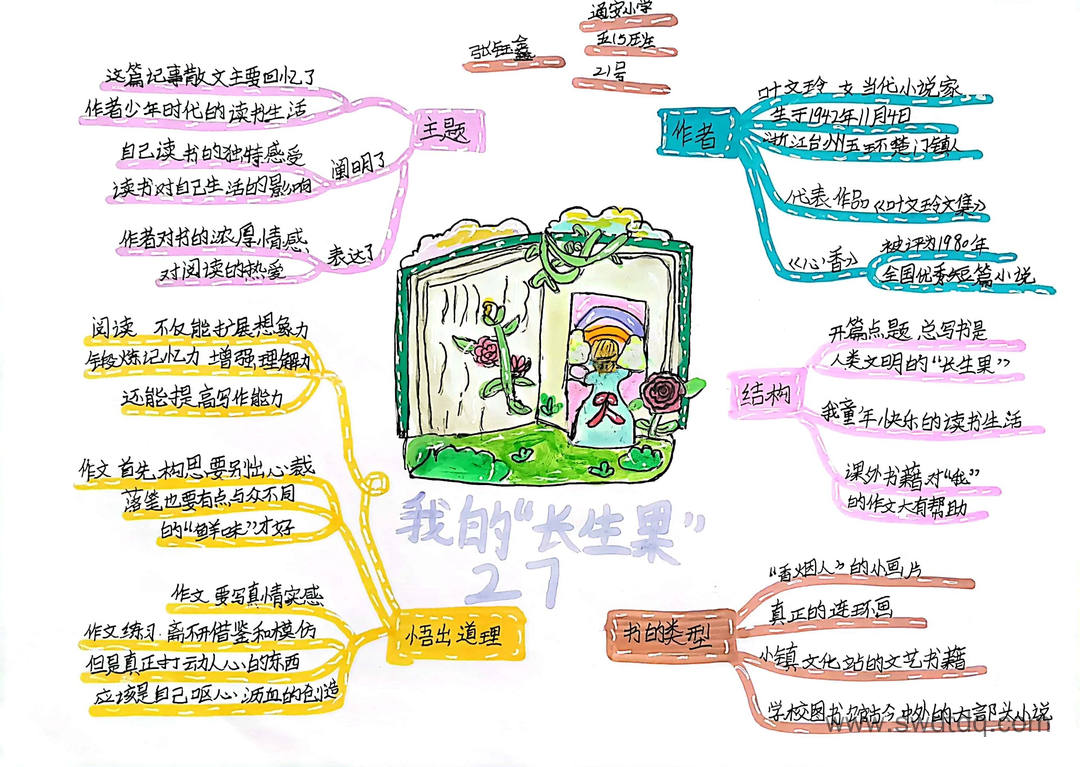 张钰鑫
通安小学
五(5)班
21号
主题
这篇记事散文主要回忆了
作者少年时代的读书生活
阐明了
自己读书的独特感受
读书对自己生活的影响
表达了
作者对书的浓厚情感
对阅读的热爱
作者
叶文玲 女 当代小说家
生于1942年11月4日
浙江台州玉环楚门镇人
代表作品《叶文玲文集》
《心香》
被评为1980年
全国优秀短篇小说
结构
开篇点题 总写书是
人类文明的“长生果”
我童年快乐的读书生活
课外书籍对“我”
的作文大有帮助
我的“长生果”
27
悟出道理
阅读 不仅能扩展想象力
锻炼记忆力 增强理解力
还能提高写作能力
作文首先构思要别出心裁
落笔也要有点与众不同
的“鲜味”才好
作文要写真情实感
作文练习 离不开借鉴和模仿
但是真正打动人心的东西
应该是自己呕心沥血的创造
书的类型
“香烟人”的小画片
真正的连环画
小镇文化站的文艺书籍
学校图书馆古今中外的大部头小说
www.swdtdq.com